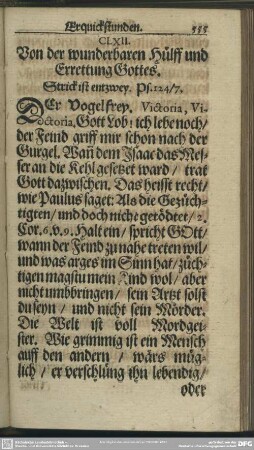 Erquickstunden. 555
CLXII.
Von der wunderbaren Hülff und
Errettung Gottes.
Strick ist entzwey. Ps. 124/7.
DEr Vogel frey. Victoria, Vi-
ctoria, Gott Lob: ich lebe noch/
der Feind griff mir schon nach der
Gurgel. Wañ dem Isaac das Mes-
ser an die Kehl gesetzet ward / trat
Gott dazwischen. Das heisst recht/
wie Paulus saget: Als die Gezüch-
tigten/ und doch nicht getödtet/ 2.
Cor. 6. v. 9. Halt ein/ spricht GOtt/
wann der Feind zu nahe treten will/
und was arges im Sinn hat/ züch-
tigen magstu mein Kind wol/ aber
nicht umbbringen/ sein Artzt solst
du seyn/ und nicht sein Mörder.
Die Welt ist voll Mordgei-
ster. Wie grimmig ist ein Mensch
auff den andern/ wärs müg-
lich / er verschlüng ihn lebendig/
oder